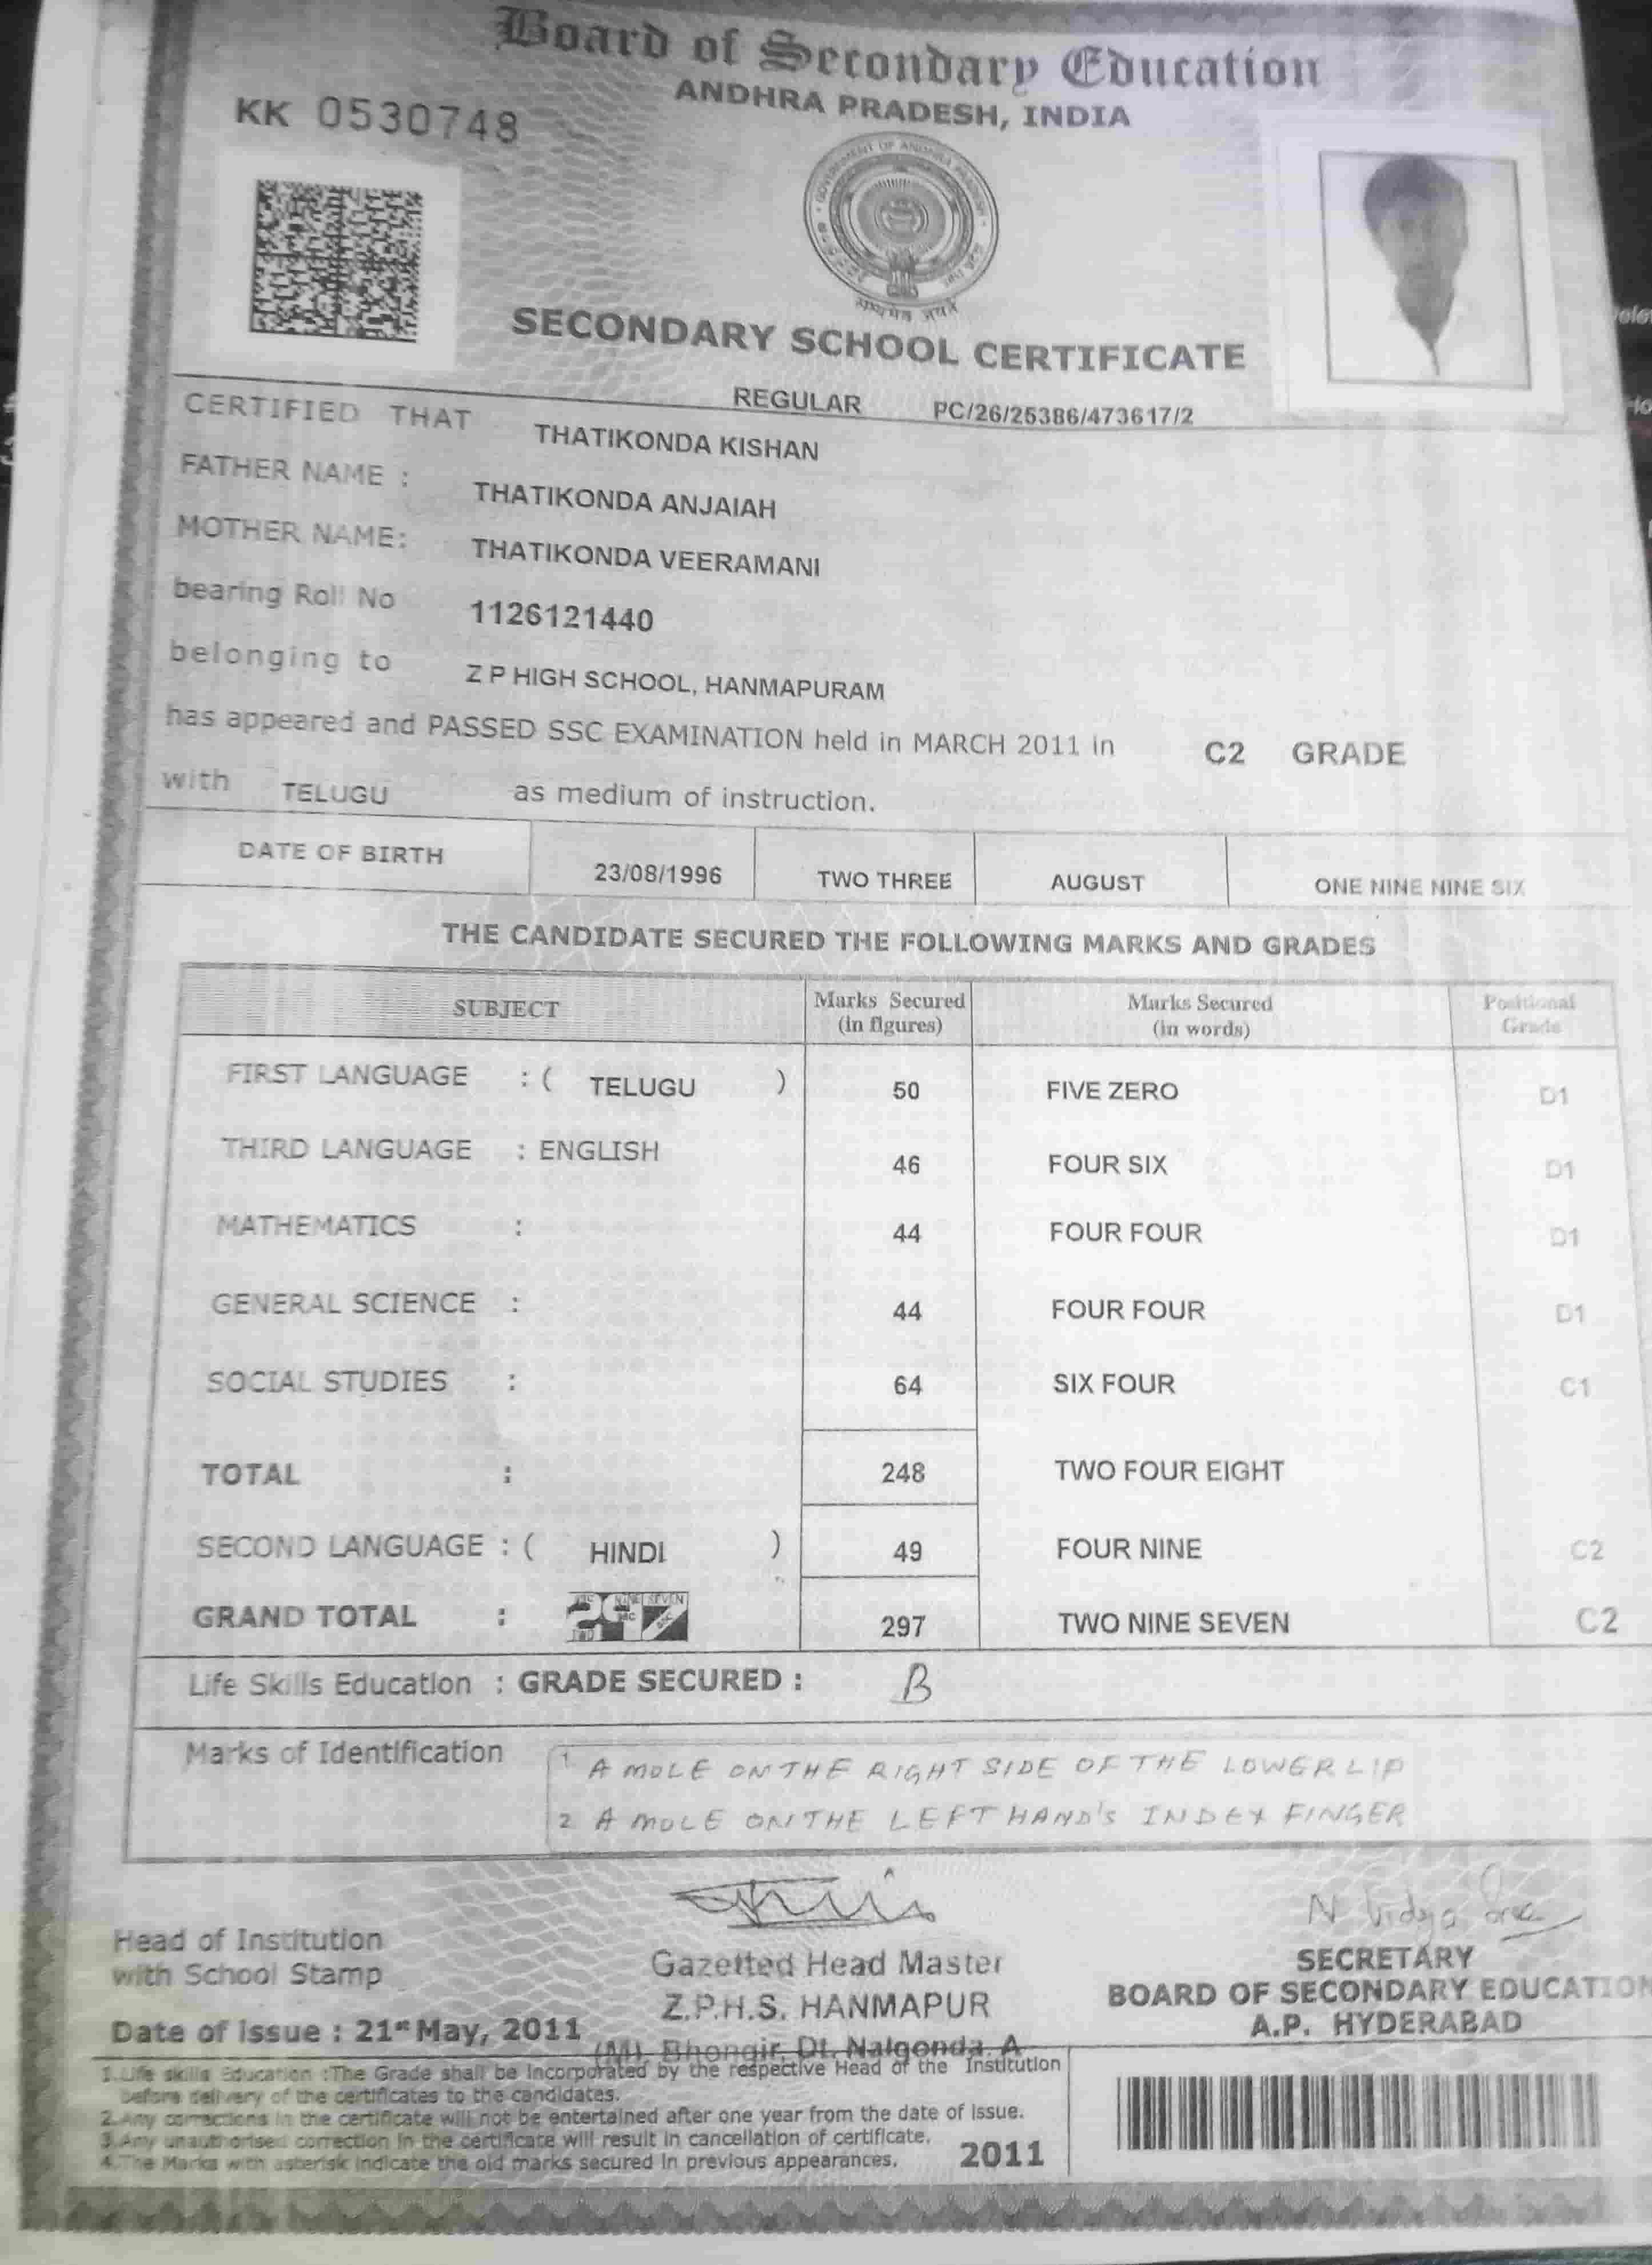 Board of Secondary Education
ANDHRA PRADESH, INDIA
KK 0530748
SECONDARY SCHOOL CERTIFICATE
REGULAR PC/26/25386/473617/2
CERTIFIED THAT THATIKONDA KISHAN
FATHER NAME : THATIKONDA ANJAIAH
MOTHER NAME: THATIKONDA VEERAMANI
bearing Roll No 1126121440
belonging to Z P HIGH SCHOOL, HANMAPURAM
has appeared and PASSED SSC EXAMINATION held in MARCH 2011 in C2 GRADE
with TELUGU as medium of instruction.
DATE OF BIRTH 23/08/1996 TWO THREE AUGUST ONE NINE NINE SIX
THE CANDIDATE SECURED THE FOLLOWING MARKS AND GRADES
SUBJECT Marks Secured (in figures) Marks Secured (in words) Positional Grade
FIRST LANGUAGE : ( TELUGU ) 50 FIVE ZERO D1
THIRD LANGUAGE : ENGLISH 46 FOUR SIX D1
MATHEMATICS : 44 FOUR FOUR D1
GENERAL SCIENCE : 44 FOUR FOUR D1
SOCIAL STUDIES : 64 SIX FOUR C1
TOTAL : 248 TWO FOUR EIGHT
SECOND LANGUAGE : ( HINDI ) 49 FOUR NINE C2
GRAND TOTAL : 297 TWO NINE SEVEN C2
Life Skills Education : GRADE SECURED : B
Marks of Identification
1. A MOLE ON THE RIGHT SIDE OF THE LOWER LIP
2 A MOLE ON THE LEFT HAND'S INDEX FINGER
Head of Institution
with School Stamp
Gazetted Head Master
Z.P.H.S. HANMAPUR
(M). Bhongir, Dt. Nalgonda. A
SECRETARY
BOARD OF SECONDARY EDUCATION
A.P. HYDERABAD
Date of issue : 21st May, 2011
1.Life skills Education :The Grade shall be incorporated by the respective Head of the Institution
before delivery of the certificates to the candidates.
2.Any corrections in the certificate will not be entertained after one year from the date of issue.
3.Any unauthorised correction in the certificate will result in cancellation of certificate.
4.The Marks with asterisk indicate the old marks secured in previous appearances.
2011